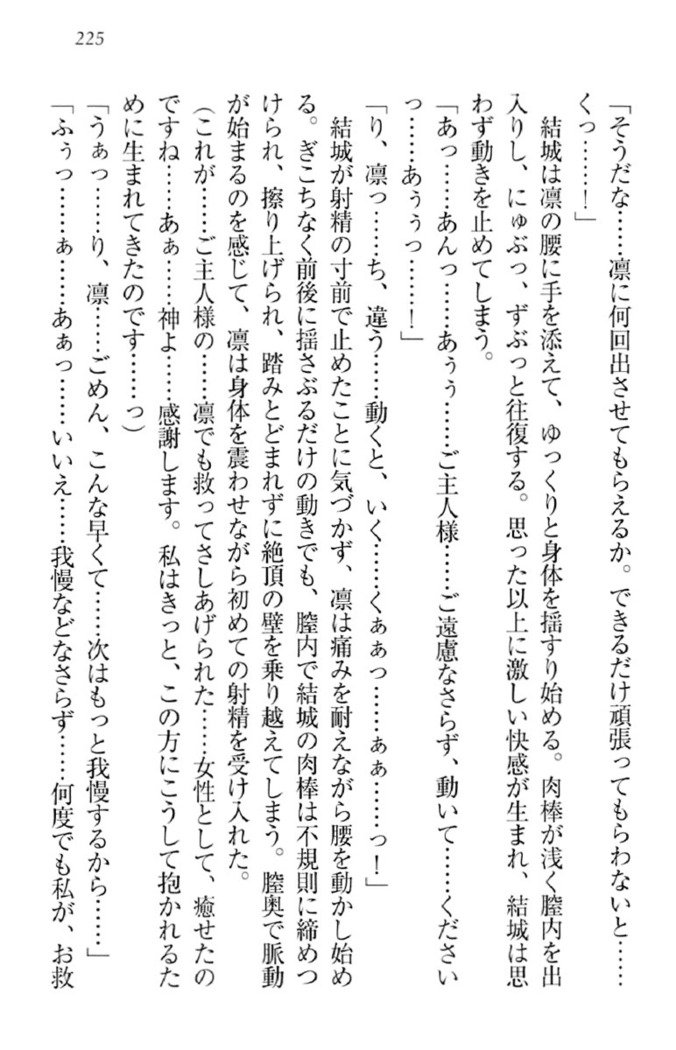 225
「そうだな……凛に何回出させてもらえるか。できるだけ頑張ってもらわないと……
くっ……！」
結城は凛の腰に手を添えて、ゆっくりと身体を揺すり始める。肉棒が浅く膣内を出
入りし、にゅぶっ、ずぶっと往復する。思った以上に激しい快感が生まれ、結城は思
わず動きを止めてしまう。
「あっ……あんっ……あぅぅ……ご主人様……ご遠慮なさらず、動いて……ください
っ……あぅぅっ……！」
「り、凛っ……ち、違う……動くと、いく……くぁぁっ……ぁぁ……っ！」
結城が射精の寸前で止めたことに気づかず、凛は痛みを耐えながら腰を動かし始め
る。ぎこちなく前後に揺さぶるだけの動きでも、膣内で結城の肉棒は不規則に締めつ
けられ、擦り上げられ、踏みとどまれずに絶頂の壁を乗り越えてしまう。膣奥で脈動
が始まるのを感じて、凛は身体を震わせながら初めての射精を受け入れた。
（これが……ご主人様の……凛でも救ってさしあげられた……女性として、癒せたの
ですね……あぁ……神よ……感謝します。私はきっと、この方にこうして抱かれるた
めに生まれてきたのです……っ）
「うぁっ……り、凛……ごめん、こんな早くて……次はもっと我慢するから……」
「ふぅっ……ぁ……あぁっ……いいえ……我慢などなさらず……何度でも私が、お救